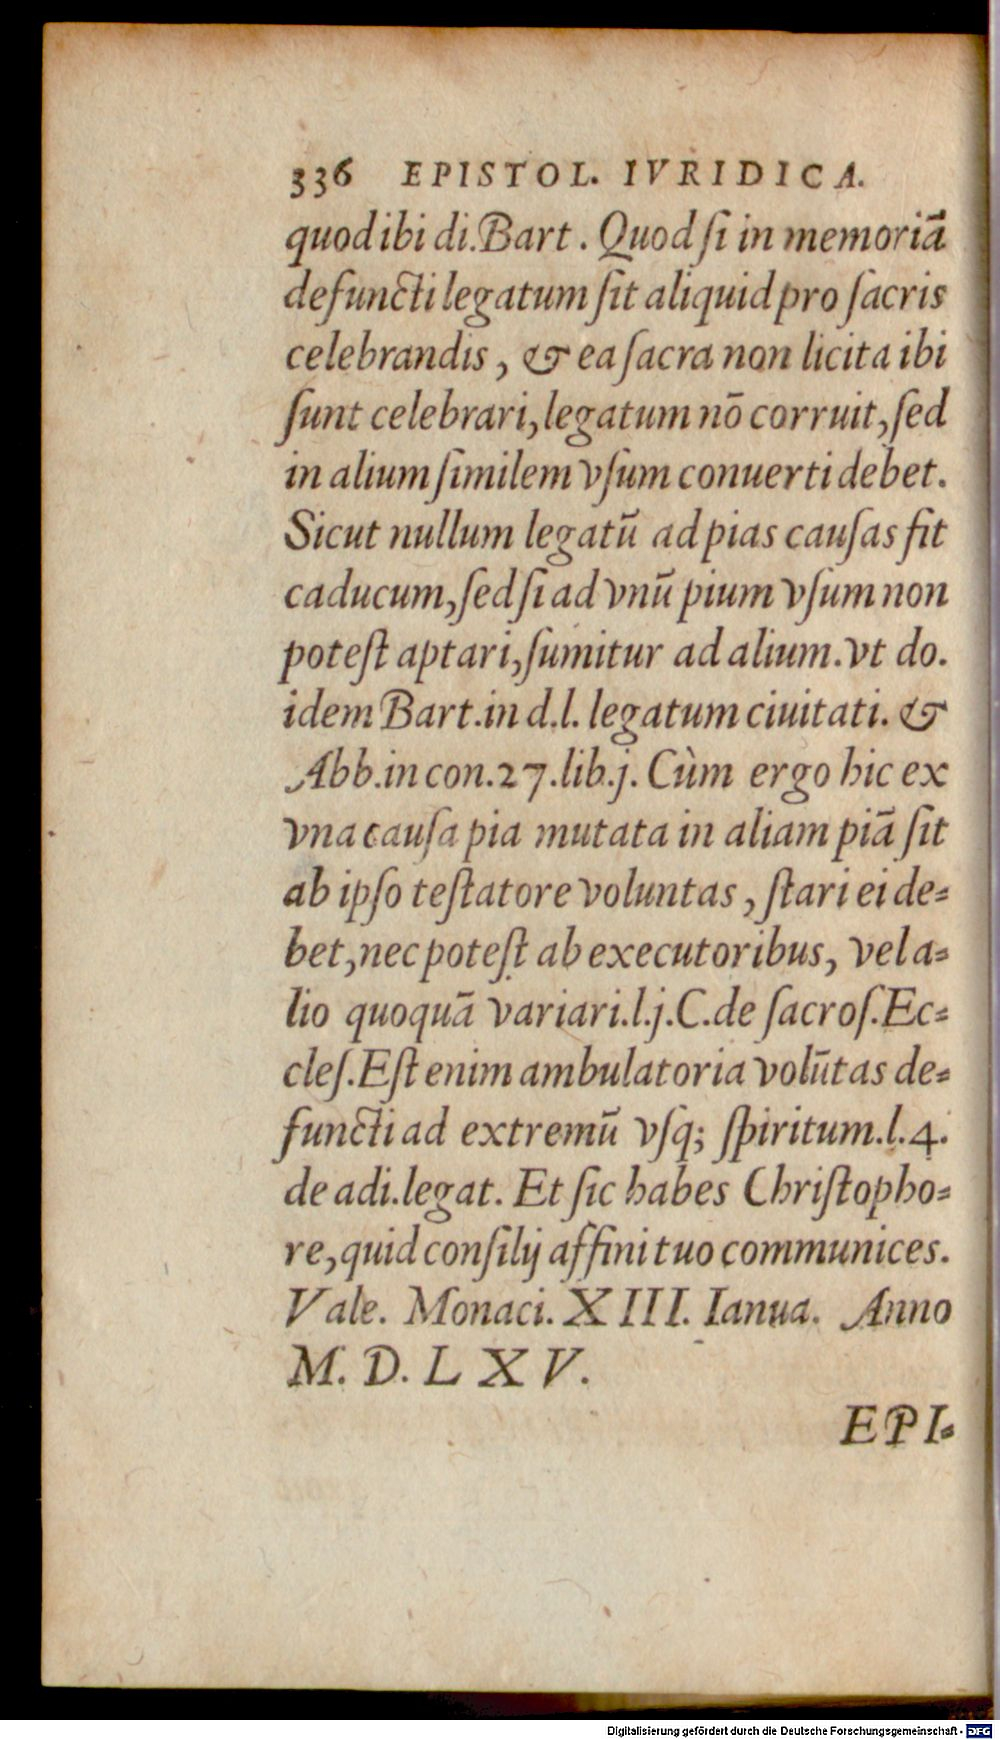 336 EPISTOL. IVRIDICA.
quod ibi di. Bart. Quod ſi in memoriā
defuncti legatum ſit aliquid pro ſacris
celebrandis, & ea ſacra non licita ibi
ſunt celebrari, legatum nō corruit, ſed
in alium ſimilem vſum conuerti debet.
Sicut nullum legatū ad pias cauſas fit
caducum, ſed ſi ad vnū pium vſum non
poteſt aptari, ſumitur ad alium. vt do.
idem Bart. in d. l. legatum ciuitati. &
Abb. in con. 27. lib. j. Cùm ergo hic ex
vna cauſa pia mutata in aliam piā ſit
ab ipſo teſtatore voluntas, ſtari ei de=
bet, nec poteſt ab executoribus, vel a=
lio quoquā variari. l. j. C. de ſacroſ. Ec=
cleſ. Eſt enim ambulatoria volūtas de=
functi ad extremū vſq; ſpiritum. l. 4.
de adi. legat. Et ſic habes Chriſtopho=
re, quid conſilij affini tuo communices.
Vale. Monaci. XIII. Ianua. Anno
M. D. L X V.
EPI=
Digitalisierung gefördert durch die Deutsche Forschungsgemeinschaft - DFG